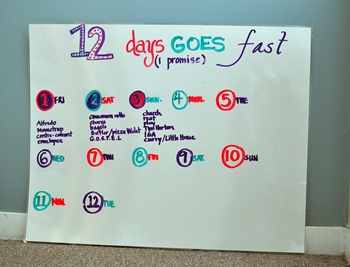 12 days GOES fast
(I promise)
1 FRI
2 SAT
3 SUN.
4 MON.
5 TUE
Alfredo
Mousetrap
centre-cohort
envelopes
cinnamon rolls
chores
bagels
Butter/pizza Night
G.O.S.P.E.L
church
rest
play
Tim Horton
IGA
curry/Little House
6 WED
7 THU
8 FRI
9 SAT.
10 SUN
11 MON.
12 TUE